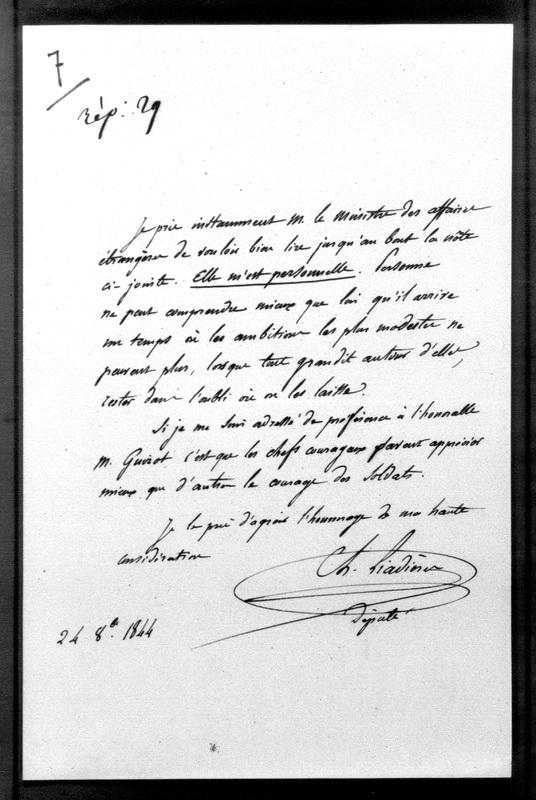 7
rép. 29
Je prie instamment M. le Ministre des affaires
étrangères de vouloir bien lire jusqu'au bout la note
ci-jointe. Elle m'est personnelle. Personne
ne peut comprendre mieux que lui qu'il arrive
un temps où les ambitions les plus modestes ne
peuvent plus, lorsque tout grandit autour d'elles,
rester dans l'oubli où on les laisse.
Si je me suis adressé de préférence à l'honorable
M. Guizot c'est que les chefs courageux savent apprécier
mieux que d'autres le courage des soldats.
Je le prie d'agréer l'hommage de ma haute
considération
Ch. Liadières
Député
24 8bre 1844